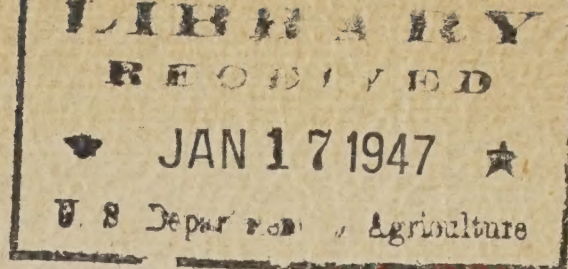 LIBRARY
RECEIVED
★ JAN 17 1947 ★
U. S Department of Agriculture